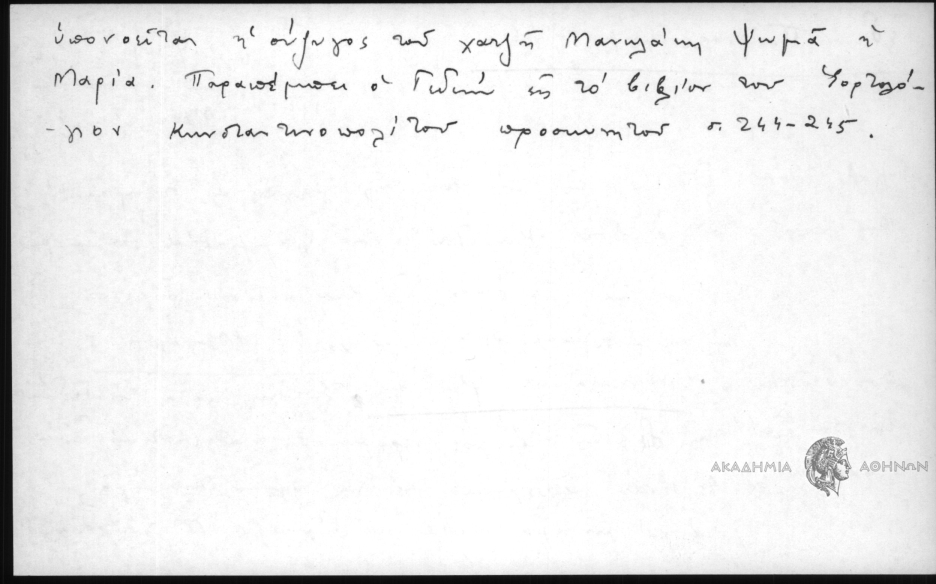 ὑπονοεῖται ἡ σύζυγος τοῦ χατζῆ Μανωλάκη Ψωμᾶ ἡ
Μαρία. Παραπέμπει ὁ Γεδεὼν εἰς τὸ βιβλίον του Ἑορτολό-
-γιον Κωνσταντινοπολίτου προσκυνητοῦ σ. 244-245.
ΑΚΑΔΗΜΙΑ ΑΘΗΝΩΝ